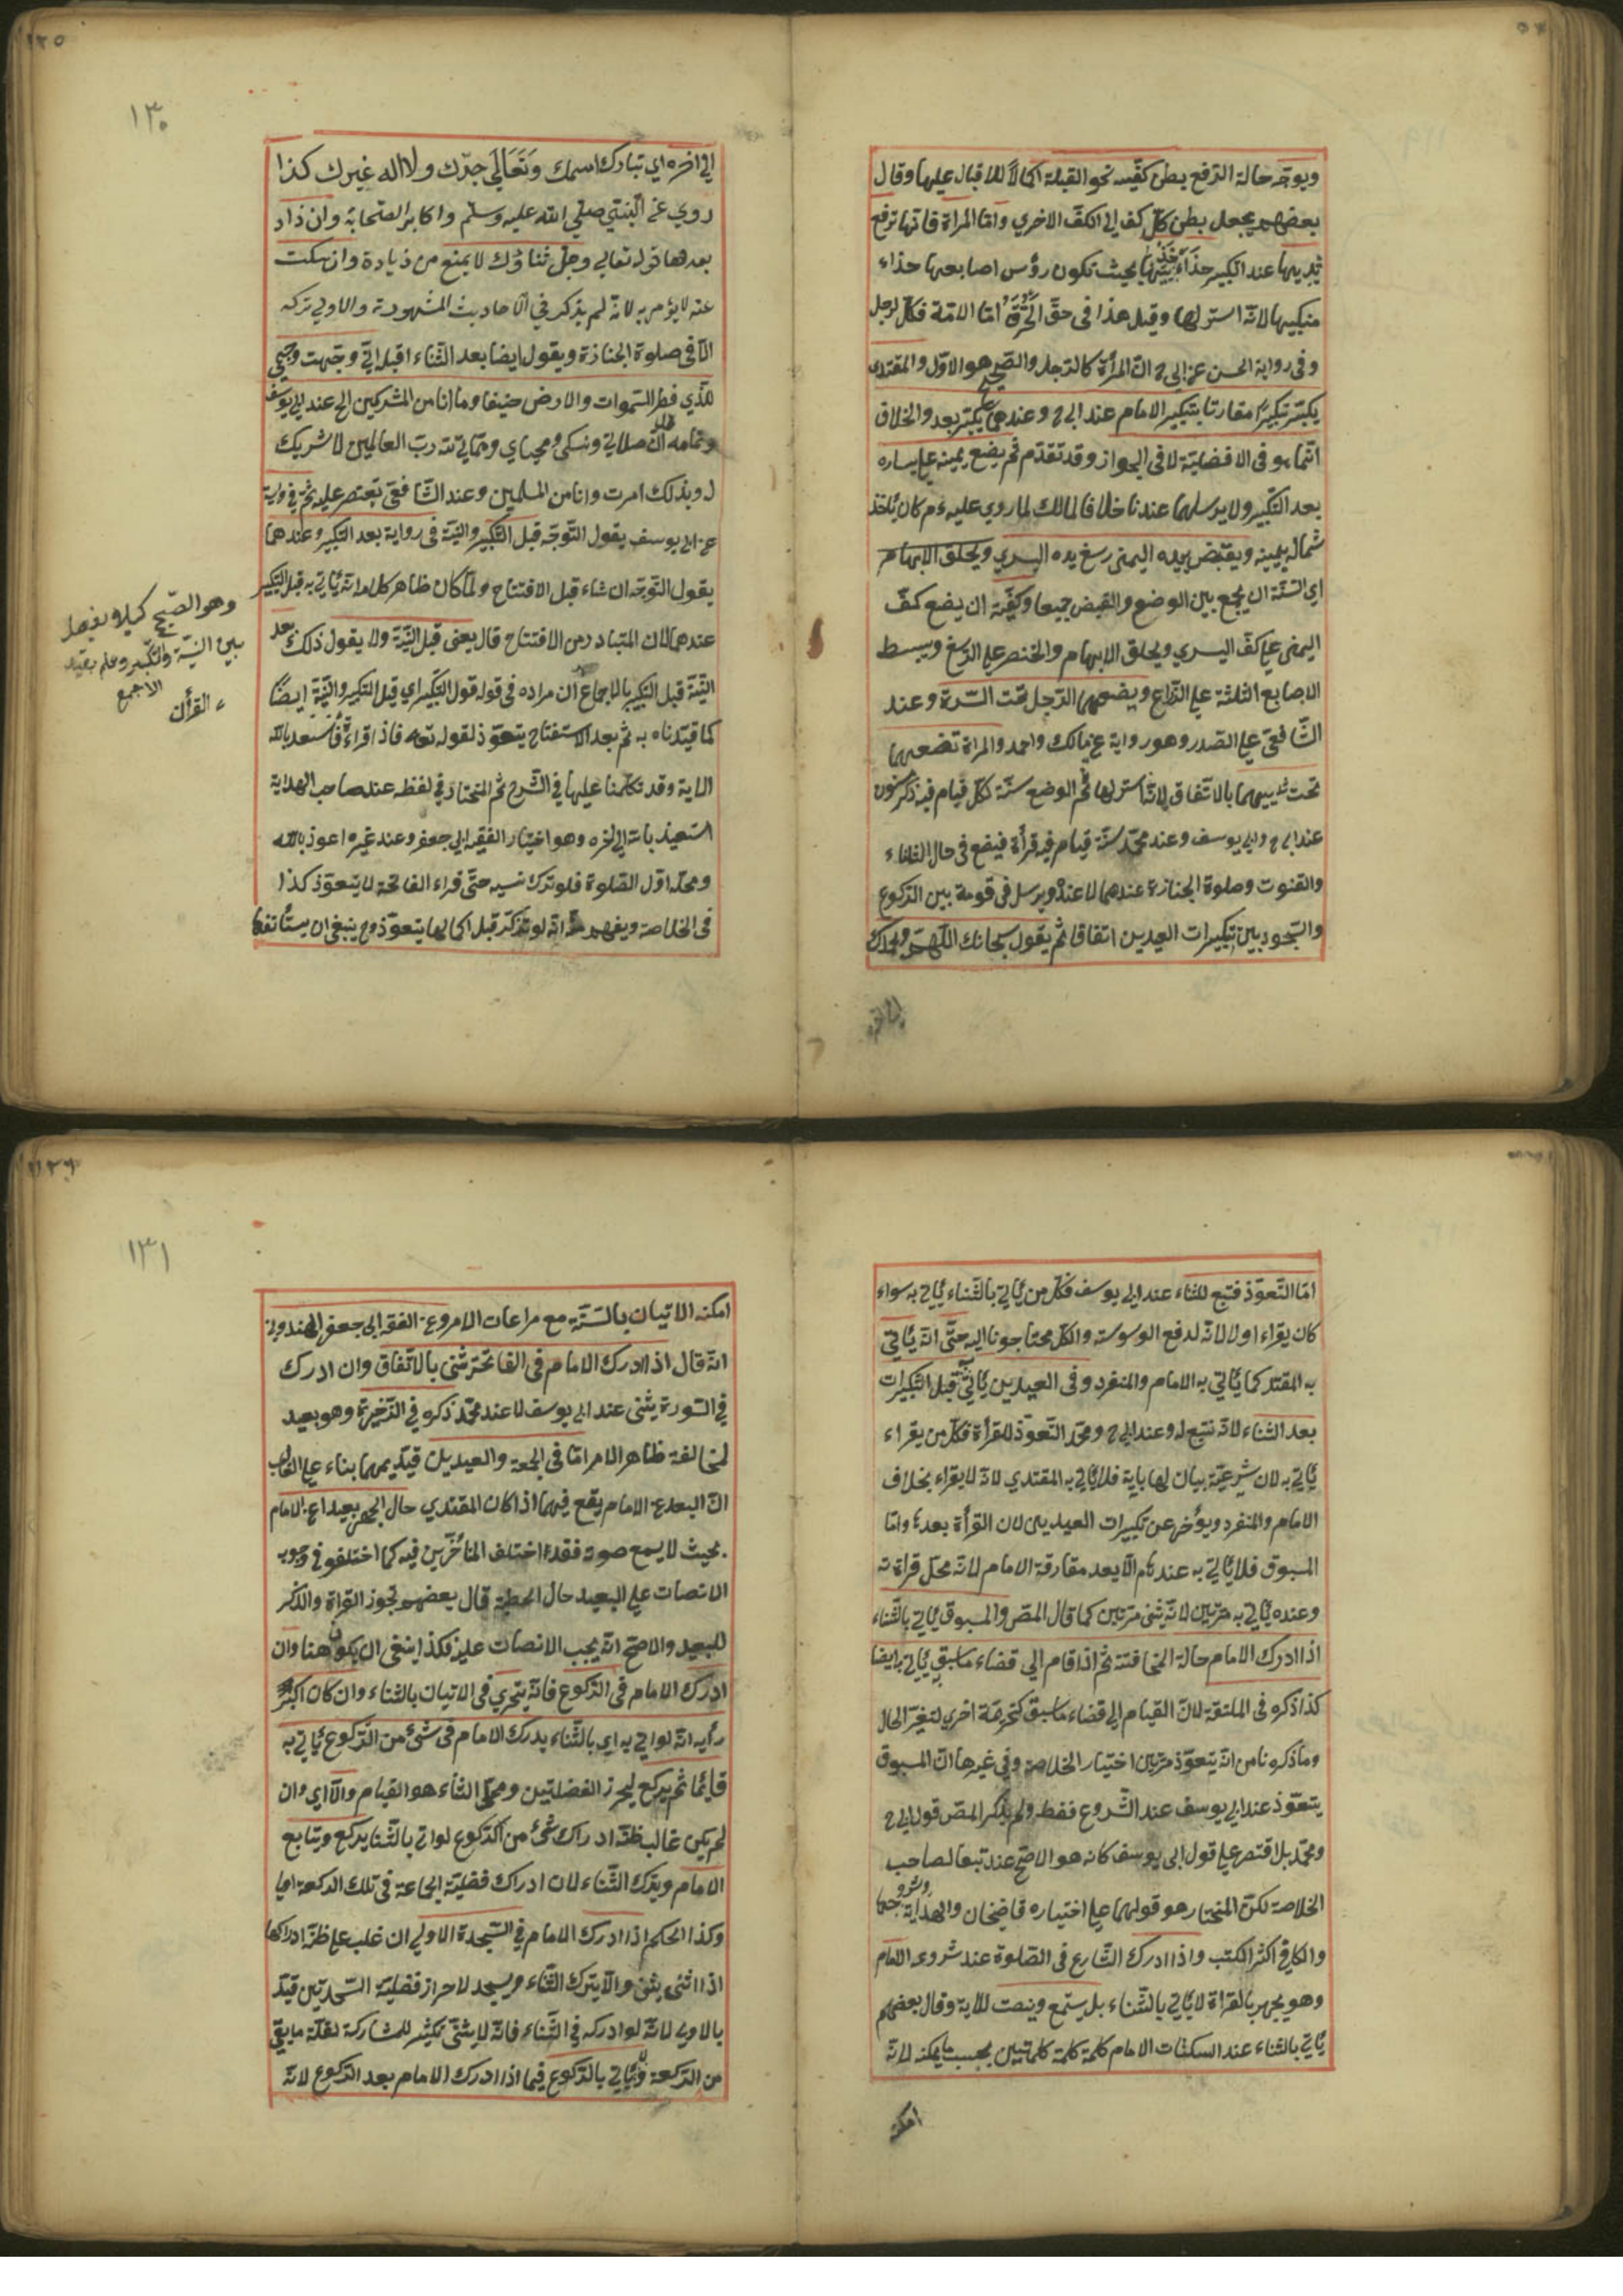 ويوجّه حالة الرّفع بطن كفّيه نحو القبلة اكمالاً للاقبال عليها وقال
بعضهم يجعل بطن كلّ كف الي الكفّ الاخري وامّا المراة فانّها ترفع
يديها عند التكبير حذآء ثدييها بحيث تكون رؤس اصابعها حذاء
منكبيها لانّه استر لها وقيل هذا في حقّ الحُرّة امّا الامة فكالرجل
وفي رواية الحسن عن ابي ح انّ المرأة كالرّجل والصّحيح هو الاوّل والمقتدي
يكبّر تكبيراً مقارنا بتكبير الامام عند ابي ح وعندهما يكبّر بعد والخلاف
انّما هو في الافضليّة لا في الجواز وقد تقدّم ثم يضع يمينه علي يساره
بعد التكبير ولا يرسلهما عندنا خلافا لمالك لما روي عليه م كان يأخذ
شماله بيمينه ويقبض بيده اليمنى رسغ يده اليسري ويحلق الابهام
اي السّنّة ان يجمع بين الوضع والقبض جميعا وكيفيّة ان يضع كفّ
اليمنى علي كفّ اليسري ويحلق الابهام والخنصر علي الرّسغ ويبسط
الاصابع الثلثة علي الذّراع ويضعهما الرّجل تحت السّرة وعند
الشّافعيّ علي الصّدر وهو رواية عن مالك واحمد والمراة تضعهما
تحت ثدييهما بالاتّفاق لانّه استر لها ثم الوضع سنّة لكلّ قيام فيه ذكر مسنون
عند ابي ح وابي يوسف وعند محمّد سنّة قيام فيه قرأة فيضع في حال الثناء
والقنوت وصلوة الجنازة عندهما لا عنده ويرسل في قومة بين الرّكوع
والسّجود بين تكبيرات العيدين اتفاقا ثم يقول سبحانك اللّهم وبحمدك
الي اخره
١٣٠
الي اخره اي تبارك اسمك وَتَعَالَي جدّك ولا اله غيرك كذا
روي عن النّبيّ صلّي الله عليه وسلّم واكابر الصّحابة وان زاد
بعدها قوله تعالي وجلّ ثناؤك لا يمنع من زيادة وان سكت
عنه لا يؤمر به لانّه لم يذكر في الاحاديث المشهودة والاولي تركه
الّا في صلوة الجنازة ويقول ايضا بعد الثّناء اقبله انّي وجّهت وجهي
للّذي فطر السّموات والارض حنيفا وما انا من المشركين الخ عند ابي يوسف
وتمامه انّ صلاتي ونسكي ومحياي ومماتي لله ربّ العالمين لا شريك
له وبذلك امرت وانا من المسلمين وعند الشّافعيّ يقتصر عليه ثمّ في رواية
عن ابي يوسف يقول التّوجّه قبل التّكبير والنيّة في رواية بعد التكبير وعندهما
يقول التّوجّه ان شاء قبل الافتتاح ولمّا كان ظاهر كلامه انّه يأتي به قبل التكبير
عندهما لان المتبادر من الافتتاح قال يعنى قبل النيّة ولا يقول ذلك بعد
النّيّة قبل التكبير بالاجماع ان مراده في قوله قول التكبير اي قبل التكبير والنيّة ايضًا
كما قيّدناه به ثم بعد الاستفتاح يتعوّذ لقوله تعالى فاذا قراءة فاستعذ بالله
الاية وقد تكلّمنا عليها في الشّرح ثم المختار في لفظه عند صاحب الهداية
استعيذ بالله الي اخره وهو اختيار الفقيه ابي جعفر وعند غيره اعوذ بالله
ومحلّه اوّل الصّلوة فلو ترك نسيه حتّى قراء الفاتحة لا يتعوّذ كذا
في الخلاصة ويفهم منه انّه لو تذكّر قبل اكمالها يتعوّذ وح ينبغي ان يستأنفها
وهو الصّحيح كيلا يفصل
بين النيّة والتكبير وعلم بقيد
الاجمع
القرأن
امّا التّعوّذ فتبع للثناء عند ابي يوسف فكلّ من يأتي بالثّناء يأتي به سواء
كان يقراء اولا لانّه لدفع الوسوسة والكلّ محتاجون اليه حتّى انّه يأتي
به المقتد كما يأتي به الامام والمنفرد وفي العيدين يأتي به قبل التكبيرات
بعد الثناء لانّه تبع له وعند ابي ح ومحمّد التّعوّذ للقرأة فكلّ من يقراء
يأتي به لان شرعيّة بيان لها باية فلا يأتي به المقتدي لانّه لا يقراء بخلاف
الامام والمنفرد ويؤخّر عن تكبيرات العيدين لان القرأة بعدها وامّا
المسبوق فلا يأتي به عندهم الّا بعد مفارقة الامام لانّه محلّ قراءته
وعنده يأتي به مرّتين لانّه يثنى مرّتين كما قال المص والمسبوق يأتي بالثّناء
اذا ادرك الامام حالة المخافتة ثم اذا قام الي قضاء ما سبق به يأتي به ايضا
كذا ذكره في الملتقة لانّ القيام الي قضاء ما سبق كتحريمة اخري لتغيّر الحال
وما ذكرونا من انّه يتعوّذ مرّتين اختيار الخلاصة وفي غيرها انّ المسبوق
يتعوّذ عند ابي يوسف عند الشّروع فقط ولم يذكر المص قول ابي ح
ومحمّد بل اقتصر علي قول ابي يوسف كانه هو الاصحّ عند تبعا لصاحب
الخلاصة لكنّ المختار هو قولهما علي اختياره قاضيخان والهداية وشروحها
والكافي اكثر الكتب واذا ادرك الشّارع في الصّلوة عند شروعه الامام
وهو يجهر بالقراة لا يأتي بالثّناء بل يستمع وينصت للاية وقال بعضهم
يأتي بالثناء عند السكتات الامام كلمة كلمة كلمتين بحسب ما يمكنه لانّه
امكنه
١٣١
امكنه الاتيان بالسّنّة مع مراعات الامر وعن الفقه ابي جعفر الهندواني
انّه قال اذا ادرك الامام في الفاتحة يثنى بالاتّفاق وان ادرك
في السّورة يثنى عند ابي يوسف لا عند محمّد ذكره في الذّخيرة وهو بعيد
لمخالفة ظاهر الامر امّا في الجمعة والعيدين قيّد بهما بناء علي الغالب
انّ البعد عن الامام يقع فيهما اذا كان المقتدي حال الجهر بعيدا عن الامام
بحيث لا يسمع صوته فقد اختلف المتأخّرين فيه كما اختلفو في وجوب
الانصات علي البعيد حال الخطبة قال بعضهم تجوز القراة والذّكر
للبعيد والاصحّ انّه يجب الانصات عليه فكذا ينبغي ان يكون هنا وان
ادرك الامام في الرّكوع فانّه يتحري في الاتيان بالثناء وان كان اكبر
رأيه انّه لو اتي به اي بالثّناء يدرك الامام في شئ من الرّكوع يأتي به
قائما ثم يركع ليحرز الفضلتين ومحلّ الثناء هو القيام والّا اي وان
لم يكن غالب ظنّه ادراك شئ من الرّكوع لو اتي بالثّنا يركع ويتابع
الامام ويترك الثّناء لان ادراك فضليّة الجماعة في تلك الركعة اولي
وكذا الحكم اذا ادرك الامام في السّجدة الاولي ان غلب علي ظنّه ادراكها
اذا اثنى يثنى والّا يترك الثّناء ويسجد لاحراز فضليّة السّجدتين قيّد
بالاولي لانّه لو ادركه في الثّناء فانّه لا يثنّي تكثير للمشاركة لقلّة ما بقي
من الرّكعة ولا يأتي بالرّكوع فيما اذا ادرك الامام بعد الرّكوع لانّه